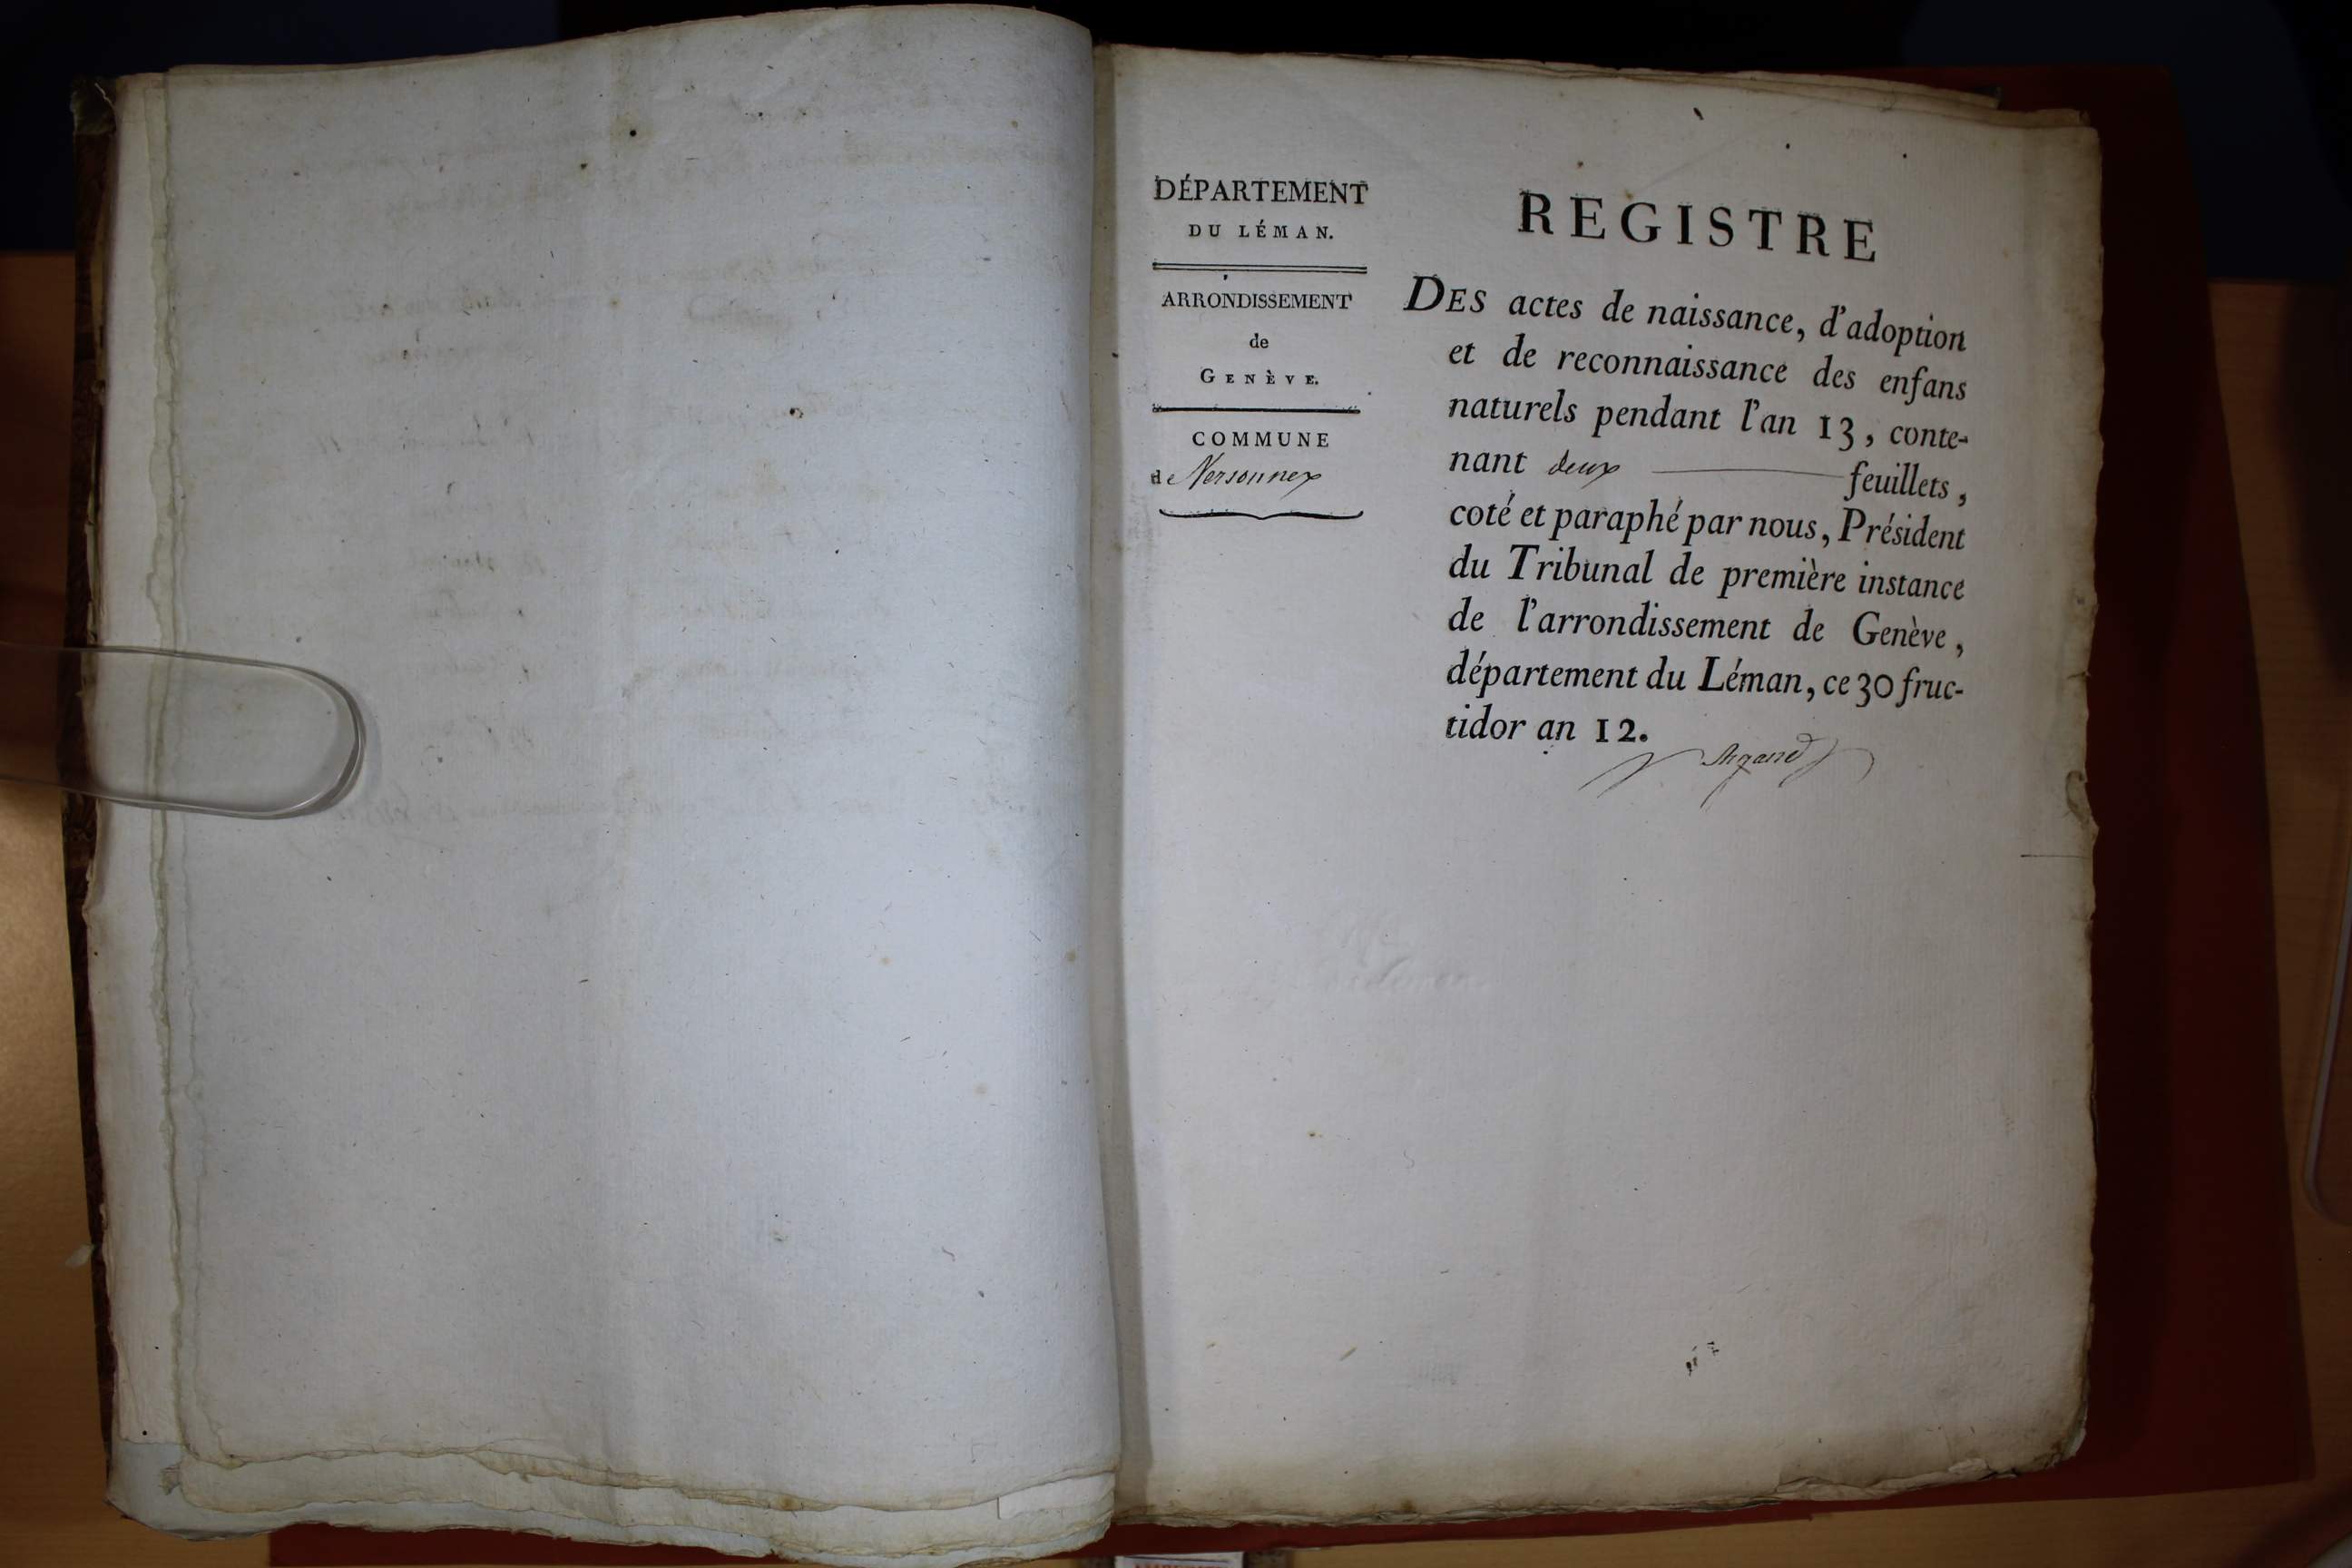 DÉPARTEMENT
DU LÉMAN.
ARRONDISSEMENT
de
GENÈVE.
COMMUNE
de Versonnex
REGISTRE
DES actes de naissance, d'adoption
et de reconnaissance des enfans
naturels pendant l'an 13, conte-
nant deux feuillets,
coté et paraphé par nous, Président
du Tribunal de première instance
de l'arrondissement de Genève,
département du Léman, ce 30 fruc-
tidor an 12.
Argand